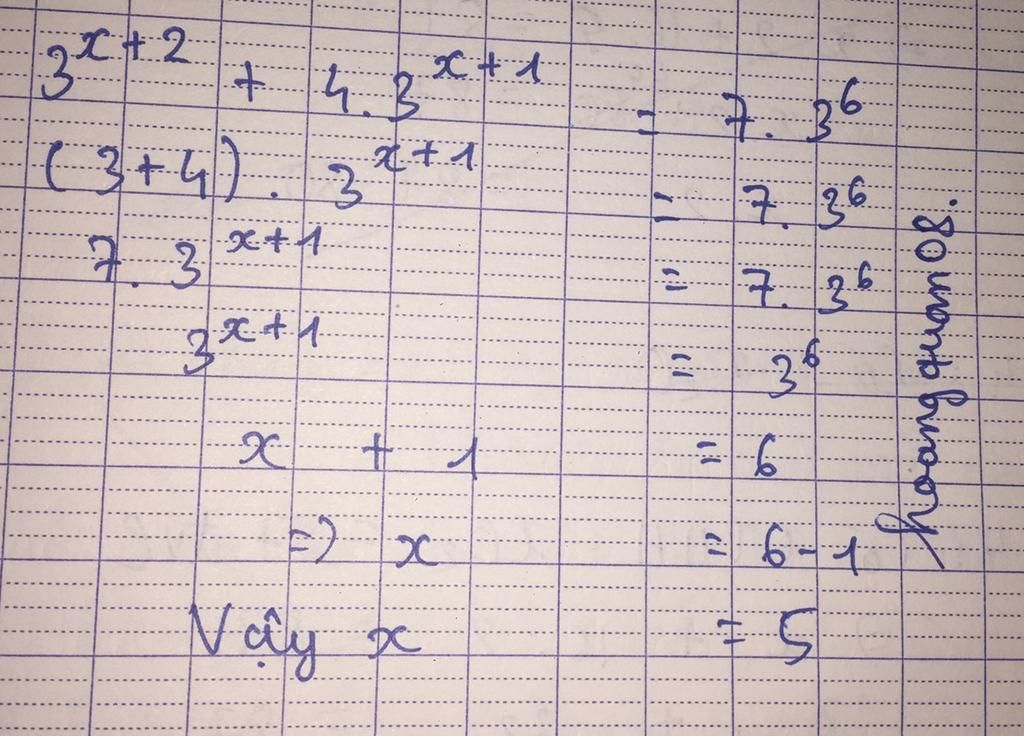 3^{x+2} + 4.3^{x+1} = 7.3^6
(3+4).3^{x+1} = 7.3^6
7.3^{x+1} = 7.3^6
3^{x+1} = 3^6
x + 1 = 6
=> x = 6-1
Vậy x = 5
hoangquan08.